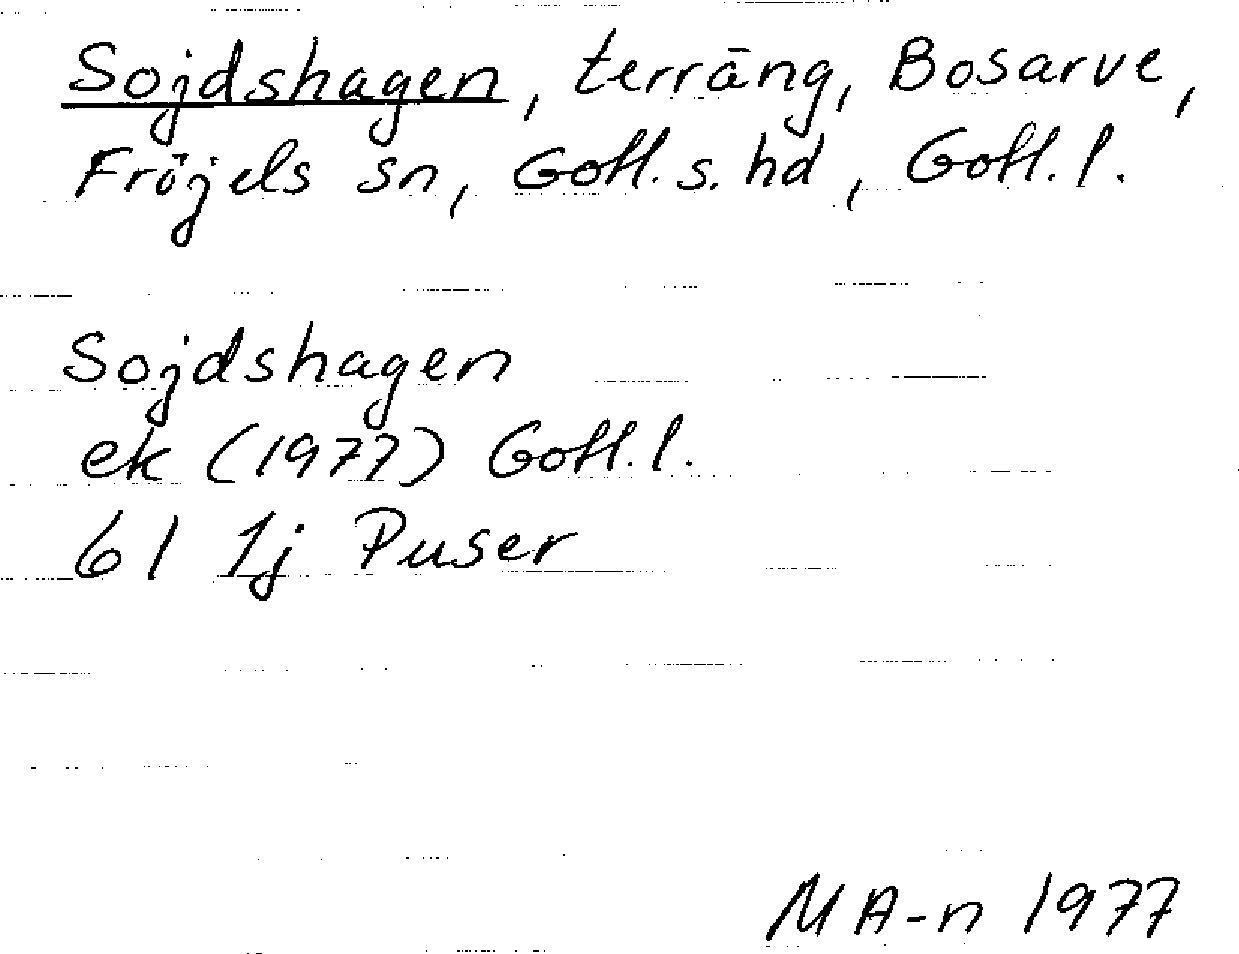 Sojdshagen, terräng, Bosarve,
Fröjels sn, Gotl. s. hd, Gotl. l.
Sojdshagen
ek (1977) Gotl. l.
6I 1j Puser
MA-n 1977